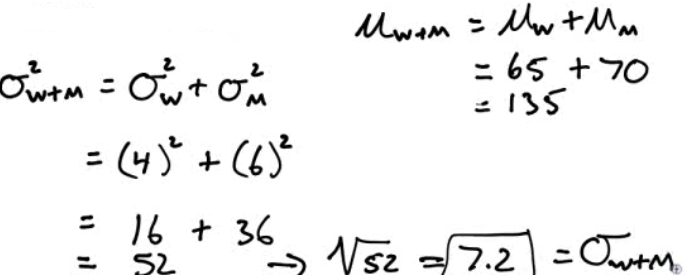 μ_{W+M} = μ_W + μ_M
= 65 + 70
= 135
σ²_{W+M} = σ²_W + σ²_M
= (4)² + (6)²
= 16 + 36
= 52 → √52 = 7.2 = σ_{W+M}